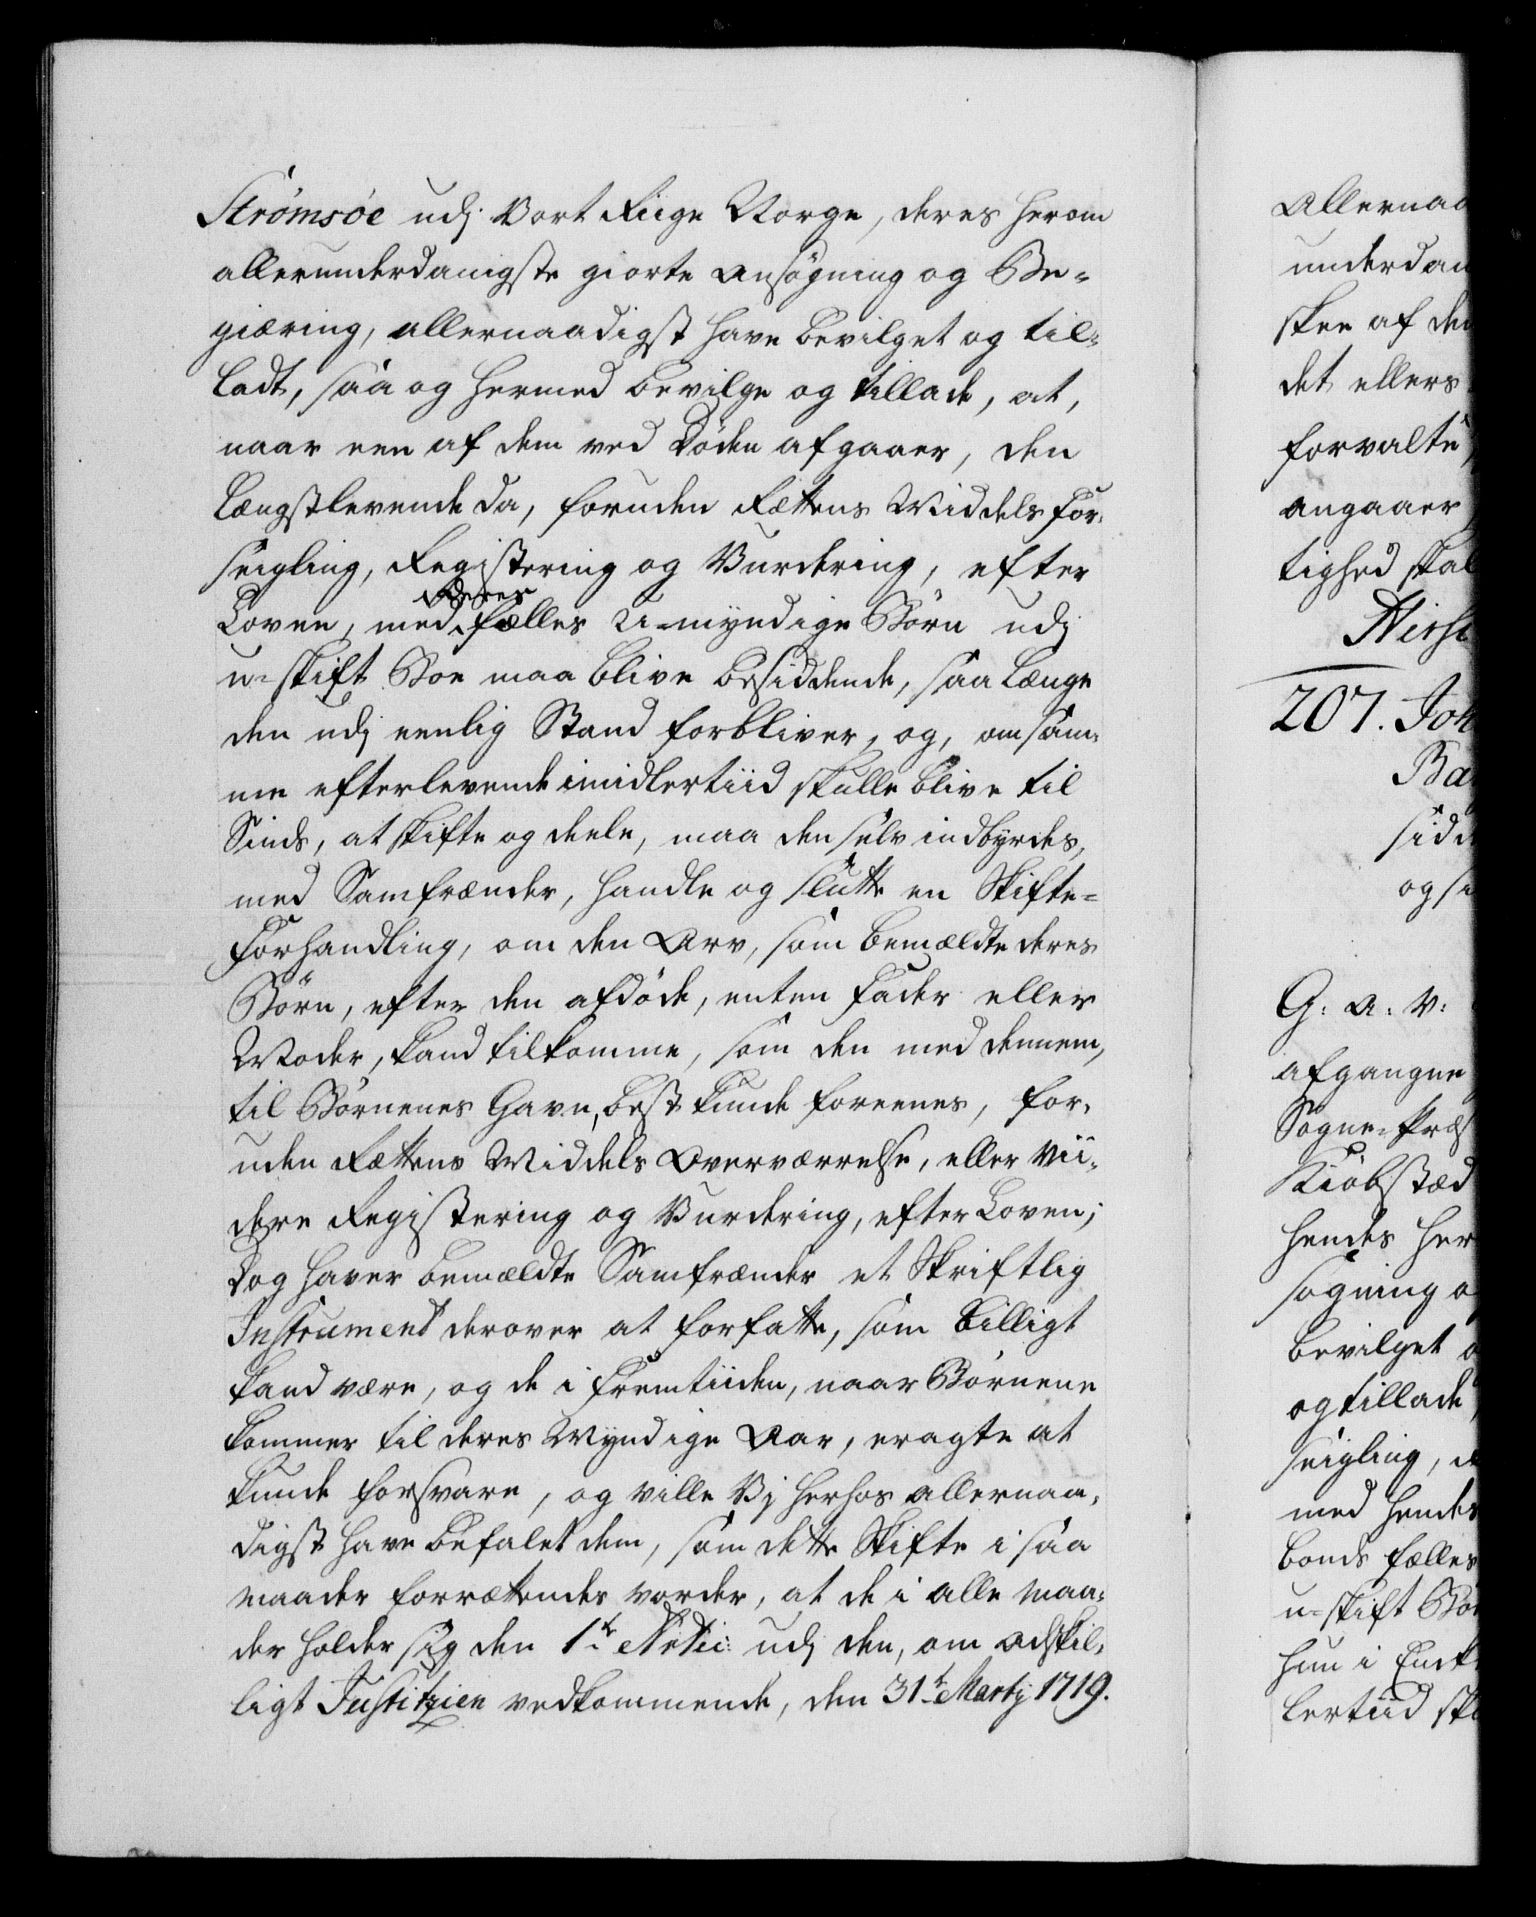 Strømsøe udj Vort Riige Norge, deres herom
allerunderdanigste giorte Ansøgning og Be-
giæring, allernaadigst have bevilget og til-
ladt, saa og hermed bevilge og tillade, at,
naar een af dem ved Døden afgaaer, den
Længstlevende da, foruden Rettens Middels For-
seigling, Registering og Vurdering, efter
Loven, med deres fælles U-myndige Børn udj
u-skift Boe maa blive besiddende, saa længe
den udj eenlig Stand forbliver, og, om sam-
me efterlevende imidlertiid skulle blive til
Sinds, at skifte og deele, maa den selv indbyrdes,
med Samfrænder, handle og slutte en Skifte-
Forhandling, om den Arv, som bemældte deres
Børn, efter den afdøde, enten Fader eller
Moder, kand tilkomme, som den med dennem,
til Børnenes Gavn, best kunde foreenes, for-
uden Rettens Middels Overværrelse, eller vii-
dere Registering og Vurdering, efter Loven;
Dog haver bemældte Samfrænder et Skriftlig
Instrument derover at forfatte, som billigt
kand være, og de i Fremtiiden, naar Børnene
kommer til deres Myndige Aar, eragte at
kunde forsvare, og ville Vj herhos allernaa-
digst have befalet dem, som dette Skifte i saa
maader forrettendes vorder, at de i alle maa-
der holder sig den 1te Artic: udj den, om adskil-
ligt Justitzien vedkommende, den 31te Martij 1719.
Allernaa
underdan
skee af den
det ellers
forvalte
angaaer
tighed skal
Hirsc
207. Joh
Ba
sidd
og s
G: A: V:
afgangne
Sogne-Præs
Kiøbstæd
hendes her
søgning o
bevilget o
og tillade
seigling,
med hendes
bonds fælles
u-skift Bo
hun i Enck
lertiid sk